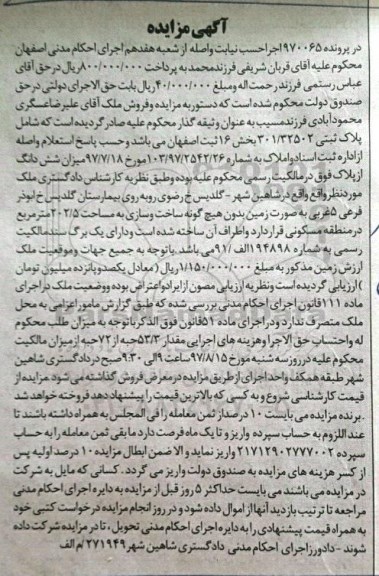 آگهی مزایده
در پرونده ۹۷۰۰۶۵ اجرا حسب نیابت واصله از شعبه هفدهم اجرای احکام مدنی اصفهان
محکوم علیه آقای قربان شریفی فرزند محمد به پرداخت ۸۰۰/۰۰۰/۰۰۰ ریال در حق آقای
عباس رستمی فرزند رحمت اله و مبلغ ۴۰/۰۰۰/۰۰۰ ریال بابت حق الاجرای دولتی در حق
صندوق دولت محکوم شده است که دستور به مزایده و فروش ملک آقای علیرضا عسگری
محمودآبادی فرزند مسیب به عنوان وثیقه گذار محکوم علیه صادر گردیده است که شامل
پلاک ثبتی ۳۰۱/۳۲۵۰۲ بخش ۱۶ ثبت اصفهان می باشد و حسب پاسخ استعلام واصله
از اداره ثبت اسناد و املاک به شماره ۱۰۳/۹۷/۲۵۴۲/۲۶ مورخ ۹۷/۷/۱۸ میزان شش دانگ
از پلاک فوق در مالکیت رسمی محکوم علیه بوده و طبق نظریه کارشناس دادگستری ملک
مورد نظر واقع واقع در شاهین شهر - گلدیس خ رضوی روبه روی بیمارستان گلدیس خ ابوذر
فرعی ۵ غربی به صورت زمین بدون هیچ گونه ساخت و سازی به مساحت ۲۰۲/۵ متر مربع
در منطقه مسکونی قرار دارد و اطراف آن ساخته شده است و دارای یک برگ سند مالکیت
رسمی به شماره ۱۹۴۸۹۸ الف /۹۱ می باشد. با توجه به جمیع جهات و موقعیت ملک
ارزش زمین مذکور به مبلغ ۱/۱۵۰/۰۰۰/۰۰۰ ریال ( معادل یکصد و پانزده میلیون تومان
) ارزیابی گردیده است و نظریه ارزیابی مصون از ایراد و اعتراض بوده و وضعیت ملک در اجرای
ماده ۱۱۱ قانون اجرای احکام مدنی بررسی شده که طبق گزارش مامور اعزامی به محل
ملک متصرف ندارد و در اجرای ماده ۵۱ قانون فوق الذکر با توجه به میزان طلب محکوم
له و احتساب حق الاجرا و هزینه های اجرایی مقدار ۵۳/۲ حبه از ۷۲ حبه از میزان مالکیت
محکوم علیه در روز سه شنبه مورخ ۹۷/۸/۱۵ ساعت ۹ الی ۹:۳۰ صبح در دادگستری شاهین
شهر طبقه همکف واحد اجرا از طریق مزایده در معرض فروش گذاشته می شود. مزایده از
قیمت کارشناسی شروع و به کسی که بالاترین قیمت را پیشنهاد دهد فروخته خواهد شد
. برنده مزایده می بایست ۱۰ درصد از ثمن معامله را فی المجلس به همراه داشته باشند تا
عند اللزوم به حساب سپرده واریز و تا یک ماه فرصت دارد مابقی ثمن معامله را به حساب
سپرده ۲۱۷۱۲۹۰۲۷۷۷۰۰۲ واریز نماید و الا ضمن ابطال مزایده ۱۰ درصد اولیه پس
از کسر هزینه های مزایده به صندوق دولت واریز می گردد . کسانی که مایل به شرکت
در مزایده می باشند می بایست حداکثر ۵ روز قبل از مزایده به دایره اجرای احکام مدنی
مراجعه تا ترتیب بازدید آنها از اموال داده شود و در روز انجام مزایده درخواست کتبی خود
به همراه قیمت پیشنهادی را به دایره اجرای احکام مدنی تحویل ، تا در مزایده شرکت داده
شوند - دادورز اجرای احکام مدنی دادگستری شاهین شهر ۲۷۱۹۴۹ /م الف